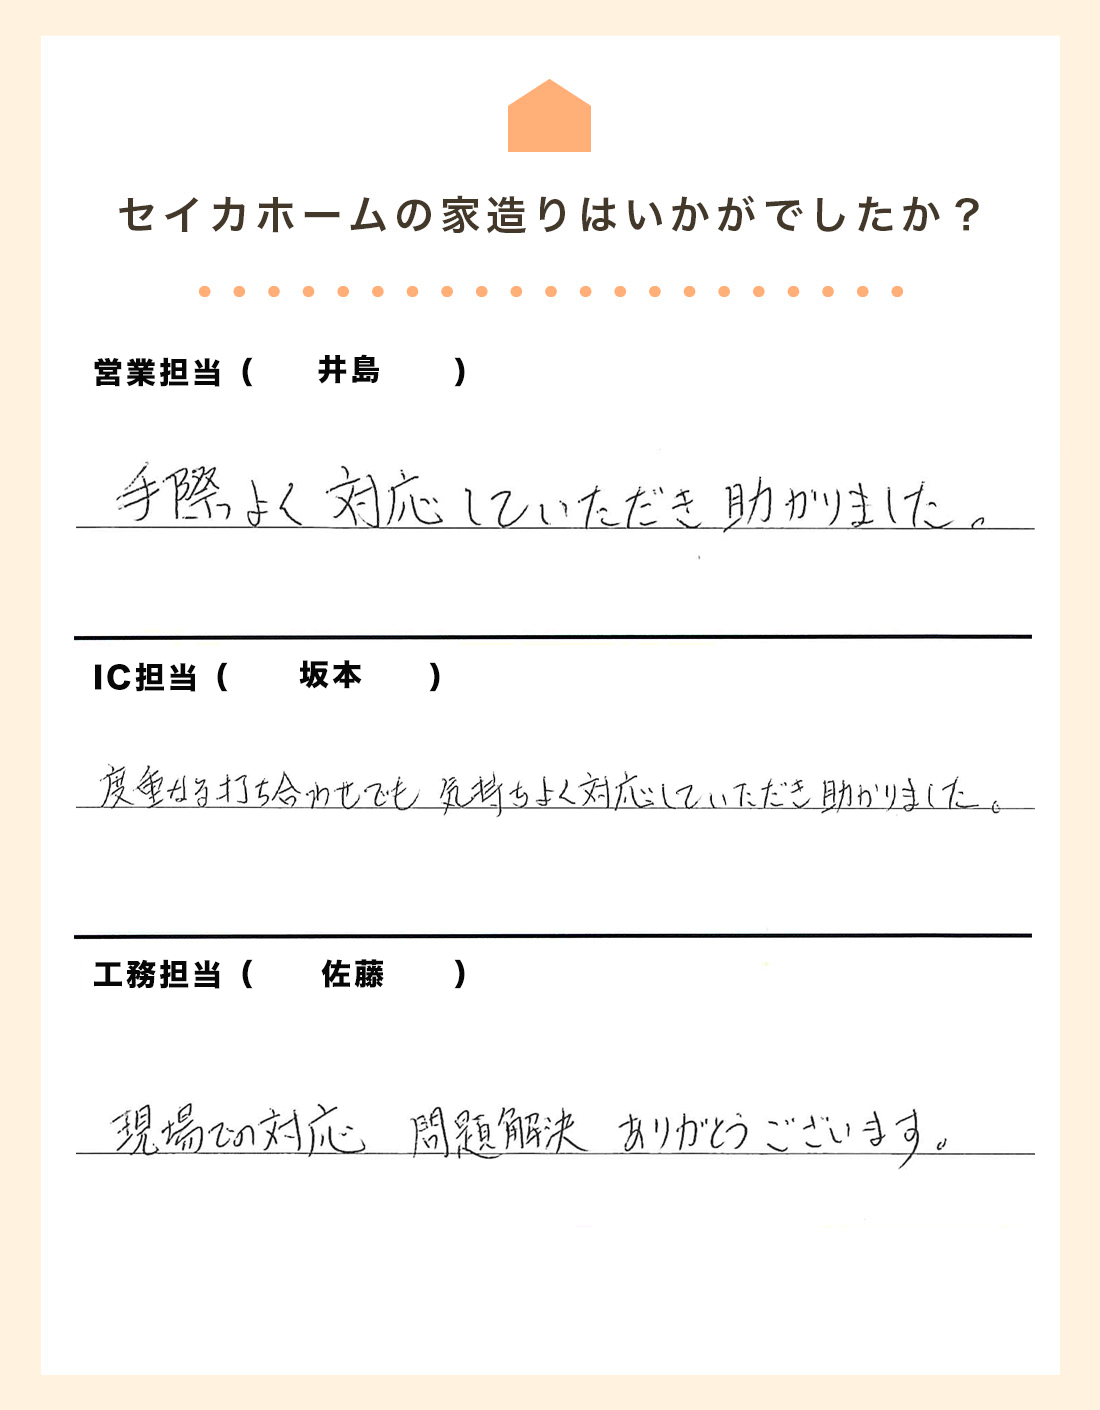 セイカホームの家造りはいかがでしたか？
営業担当（　井島　）
手際っよく 対応していただき 助かりました。
IC担当（　坂本　）
度重なる打ち合わせでも 気持ちよく対応していただき 助かりました。
工務担当（　佐藤　）
現場での対応　問題解決　ありがとうございます。